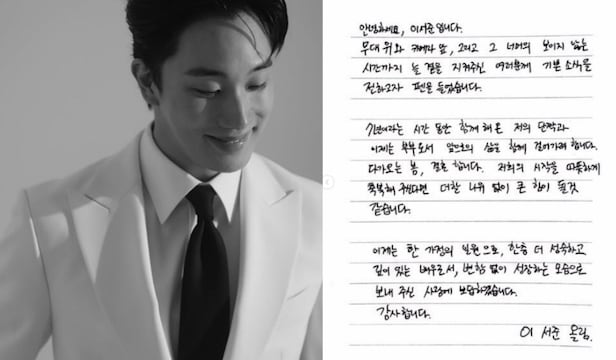 안녕하세요, 이서준입니다.
무대 위와 카메라 앞, 그리고 그 너머의 보이지 않는
시간까지 늘 곁을 지켜주신 여러분께 기쁜 소식을
전하고자 펜을 들었습니다.
7년이라는 시간 동안 함께 해 온 저의 단짝과
이제는 부부로서 앞으로의 삶을 함께 걸어가려 합니다.
다가오는 봄, 결혼 합니다. 저희의 시작을 따뜻하게
축복해 주신다면 더할 나위 없이 큰 힘이 될 것
같습니다.
이제는 한 가정의 일원으로, 한층 더 성숙하고
깊이 있는 배우로서, 변함 없이 성장하는 모습으로
보내 주신 사랑에 보답하겠습니다.
감사합니다.
이 서준 올림.